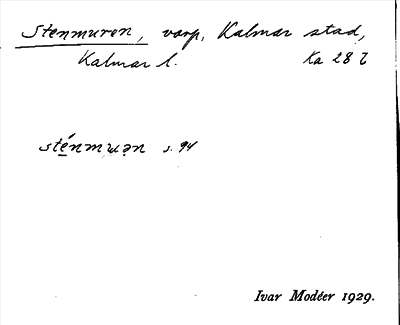 Stenmuren, varp, Kalmar stad,
Kalmar l. Ka 28 Z
sténmuən s. 94
Ivar Modéer 1929.